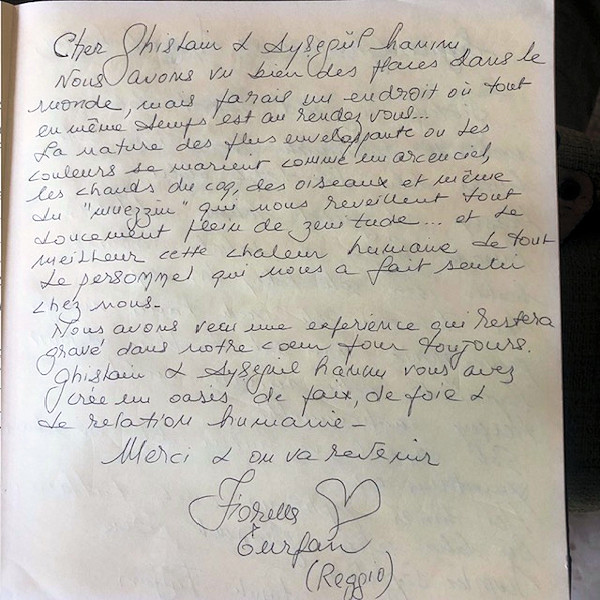 Cher Ghislain & Ayşegül hanım
Nous avons vu bien des places dans le
monde, mais jamais un endroit où tout
en même temps est au rendez vous...
La nature des plus enveloppante ou les
couleurs se marient comme un arc en ciel,
les chauds du coq, des oiseaux et même
du "muezzin" qui nous reveillent tout
doucement plein de zenitude... et le
meilleur cette chaleur humaine de tout
le personnel qui nous a fait sentir
chez nous-
Nous avons vecu une experience qui restera
gravé dans notre coeur pour toujours.
Ghislain & Ayşegül hanım vous avez
crée un oasis de paix, de joie &
de relation humaine-
Merci & on va revenir
(Reggio)